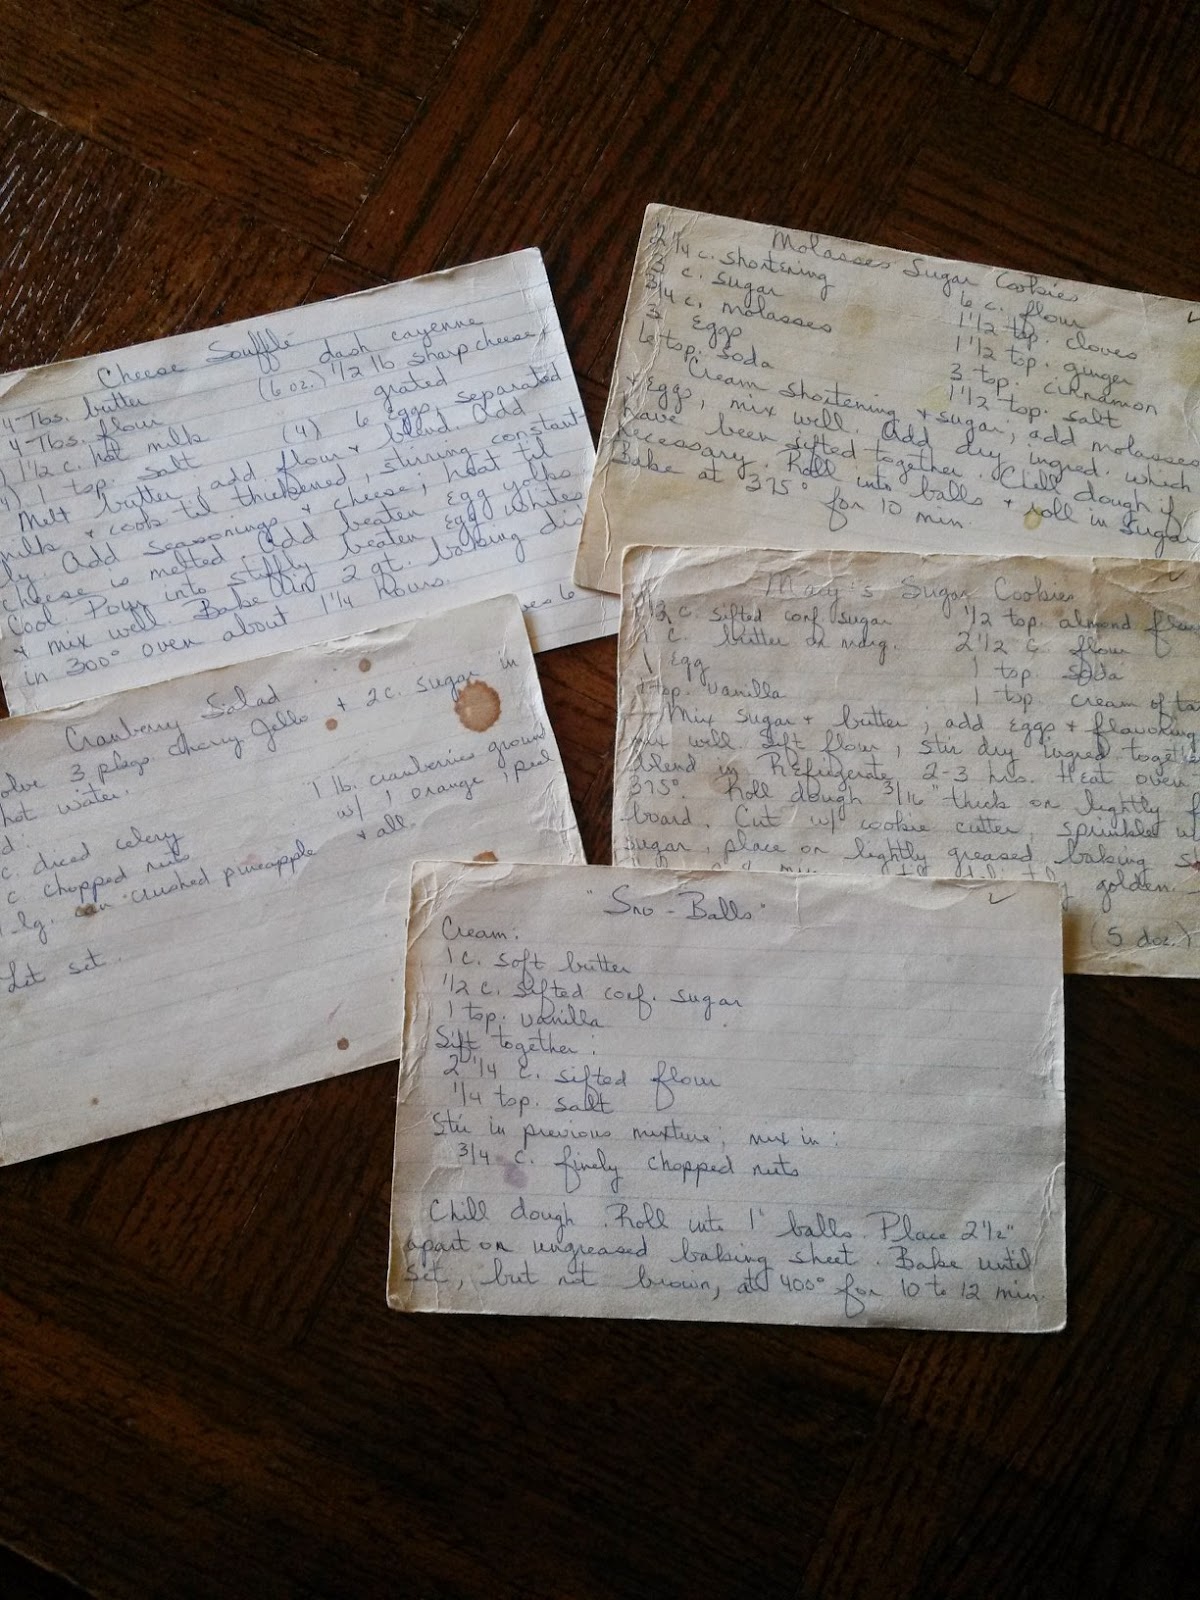 Cheese Soufflé
4-Tbs. butter dash cayenne
4-Tbs. flour (6 oz.) 1/2 lb sharp cheese,
1 1/2 c. hot milk grated
1 tsp. salt (4) 6 eggs, separated
Melt butter, add flour & blend. Add
milk & cook til thickened, stirring constant-
ly. Add seasonings & cheese; heat til
cheese is melted. Add beaten egg yolks.
Cool. Pour into stiffly beaten egg whites
& mix well. Bake in 2 qt. baking dis
in 300° oven about 1 1/4 hours.
es 6
Molasses Sugar Cookies
2 1/4 c. shortening 6 c. flour
3 c. sugar 1 1/2 tsp. cloves
3/4 c. molasses 1 1/2 tsp. ginger
3 eggs 3 tsp. cinnamon
6 tsp. soda 1 1/2 tsp. salt
Cream shortening & sugar; add molasses
& eggs, mix well. Add dry ingred. which
have been sifted together. Chill dough if
necessary. Roll into balls & roll in sugar
Bake at 375° for 10 min.
Cranberry Salad
olve 3 pkgs. cherry Jello & 2 c. sugar in
hot water.
d: 1 lb. cranberries ground
c diced celery w/ 1 orange, peel
c chopped nuts & all.
lg. can crushed pineapple
Let set.
Mary's Sugar Cookies
1/2 c. sifted conf. sugar 1/2 tsp. almond flav
1 c. butter or marg. 2 1/2 c. flour
1 egg 1 tsp. soda
1 tsp. vanilla 1 tsp. cream of tar
Mix sugar & butter, add eggs & flavoring
mix well. Sift flour, stir dry ingred. together
blend in. Refrigerate 2-3 hrs. Heat oven
375°. Roll dough 3/16" thick on lightly f
board. Cut w/ cookie cutter, sprinkle w
sugar, place on lightly greased baking s
golden.
(5 doz.)
"Sno-Balls"
Cream:
1 c. soft butter
1/2 c. sifted conf. sugar
1 tsp. vanilla
Sift together:
2 1/4 c. sifted flour
1/4 tsp. salt
Stir in previous mixture; mix in:
3/4 c. finely chopped nuts
Chill dough. Roll into 1" balls. Place 2 1/2"
apart on ungreased baking sheet. Bake until
set, but not brown, at 400° for 10 to 12 min.